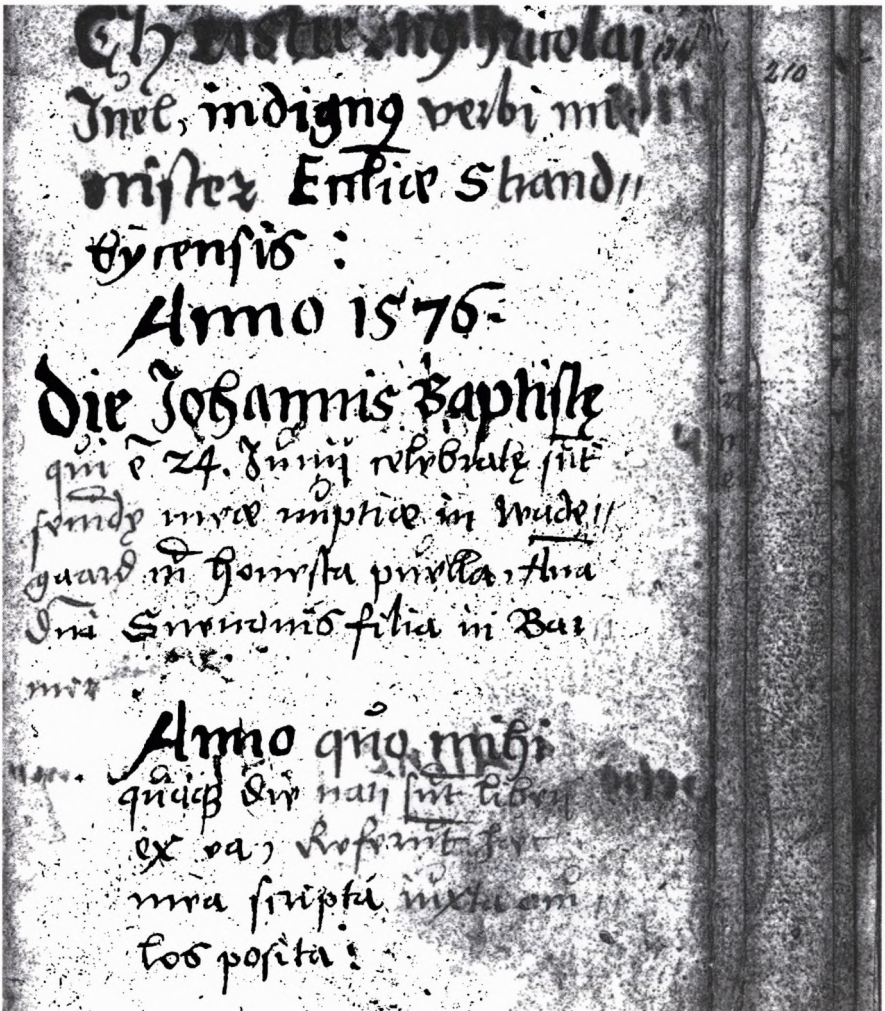 Christiernꝯ Nicolai
210
Inel, indignꝯ verbi mi
nister Ecclīæ Strand//
bycensis :
Anno 1576.
Die Johannis Baptistę
qui ē 24. Junij celebratę sūt
secūdę meæ nuptiæ in Wade//
gaard cū honesta puella, Ana
Dni Suenonis filia in Bar
mer
Anno quo mihi
quoqꝫ die nati sūt liberi
ex ea, Referūt hæc
mea scripta iuxta
los posita :